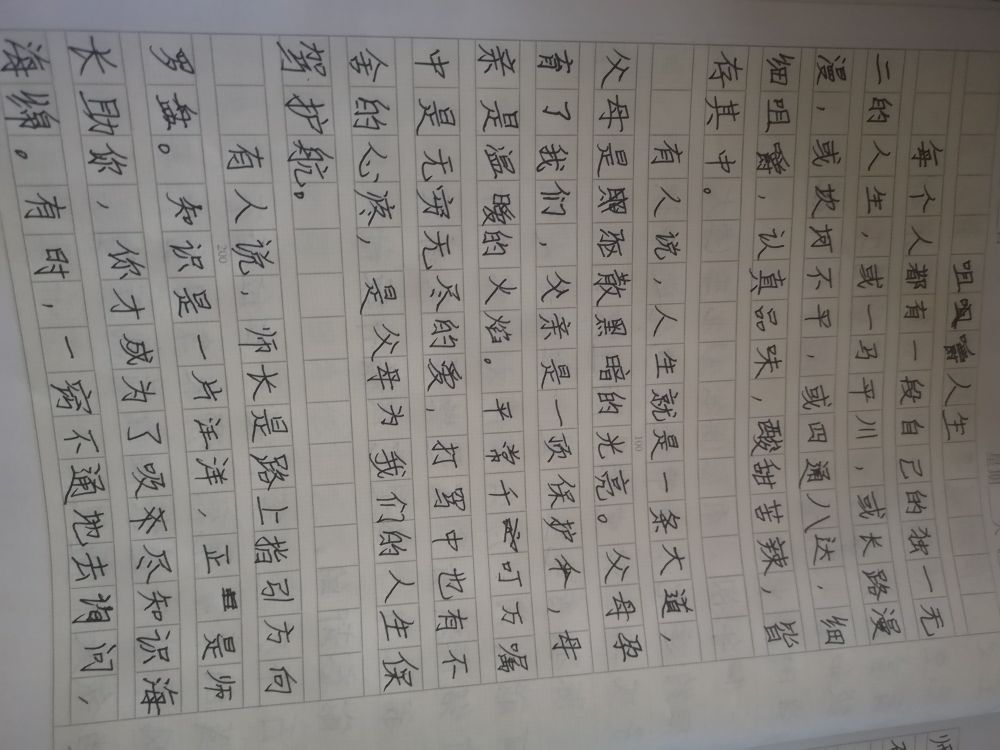 咀嚼人生
每个人都有一段自己的独一无
二的人生，或一马平川，或长路漫
漫，或坎坷不平，或四通八达，细
细咀嚼，认真品味，酸甜苦辣，皆
存其中。
有人说，人生就是一条大道，
父母是照驱散黑暗的光亮。父母孕
育了我们，父亲是一顶保护伞，母
亲是温暖的火焰。平常千叮万嘱
中是无穷无尽的爱，打骂中也有不
舍的心疼，是父母为我们的人生保
驾护航。
有人说，师长是路上指引方向
罗盘。知识是一片汪洋，正是师
长助你，你才成为了吸不尽知识海
海绵。有时，一窍不通地去询问，
100
200